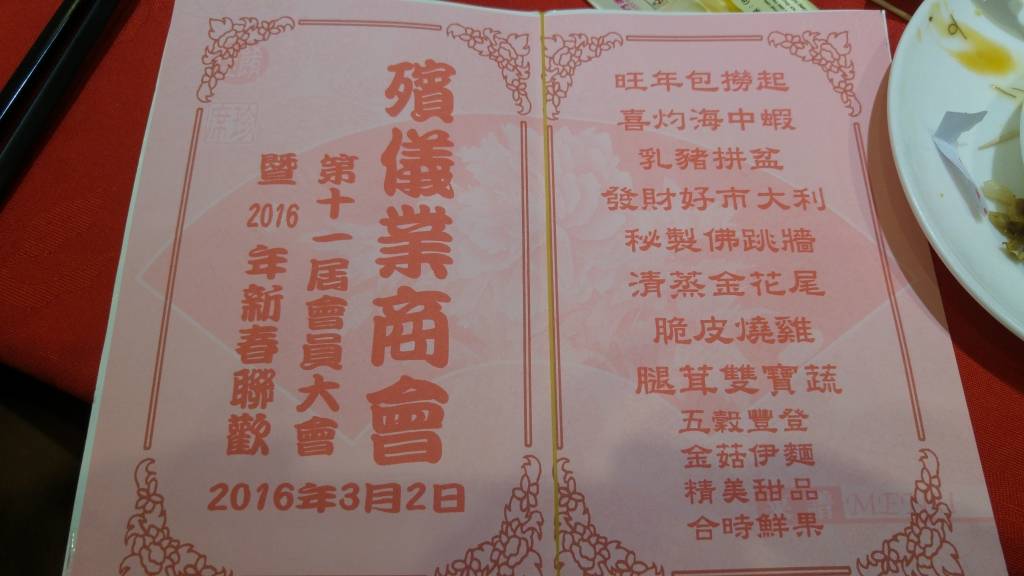 殯儀業商會
第十一居會員大會
暨2016年新春聯歡
2016年3月2日
旺年包撈起
喜灼海中蝦
乳豬拼盆
發財好市大利
秘製佛跳牆
清蒸金花尾
脆皮燒雞
腿茸雙寶蔬
五穀豐登
金菇伊麵
精美甜品
合時鮮果